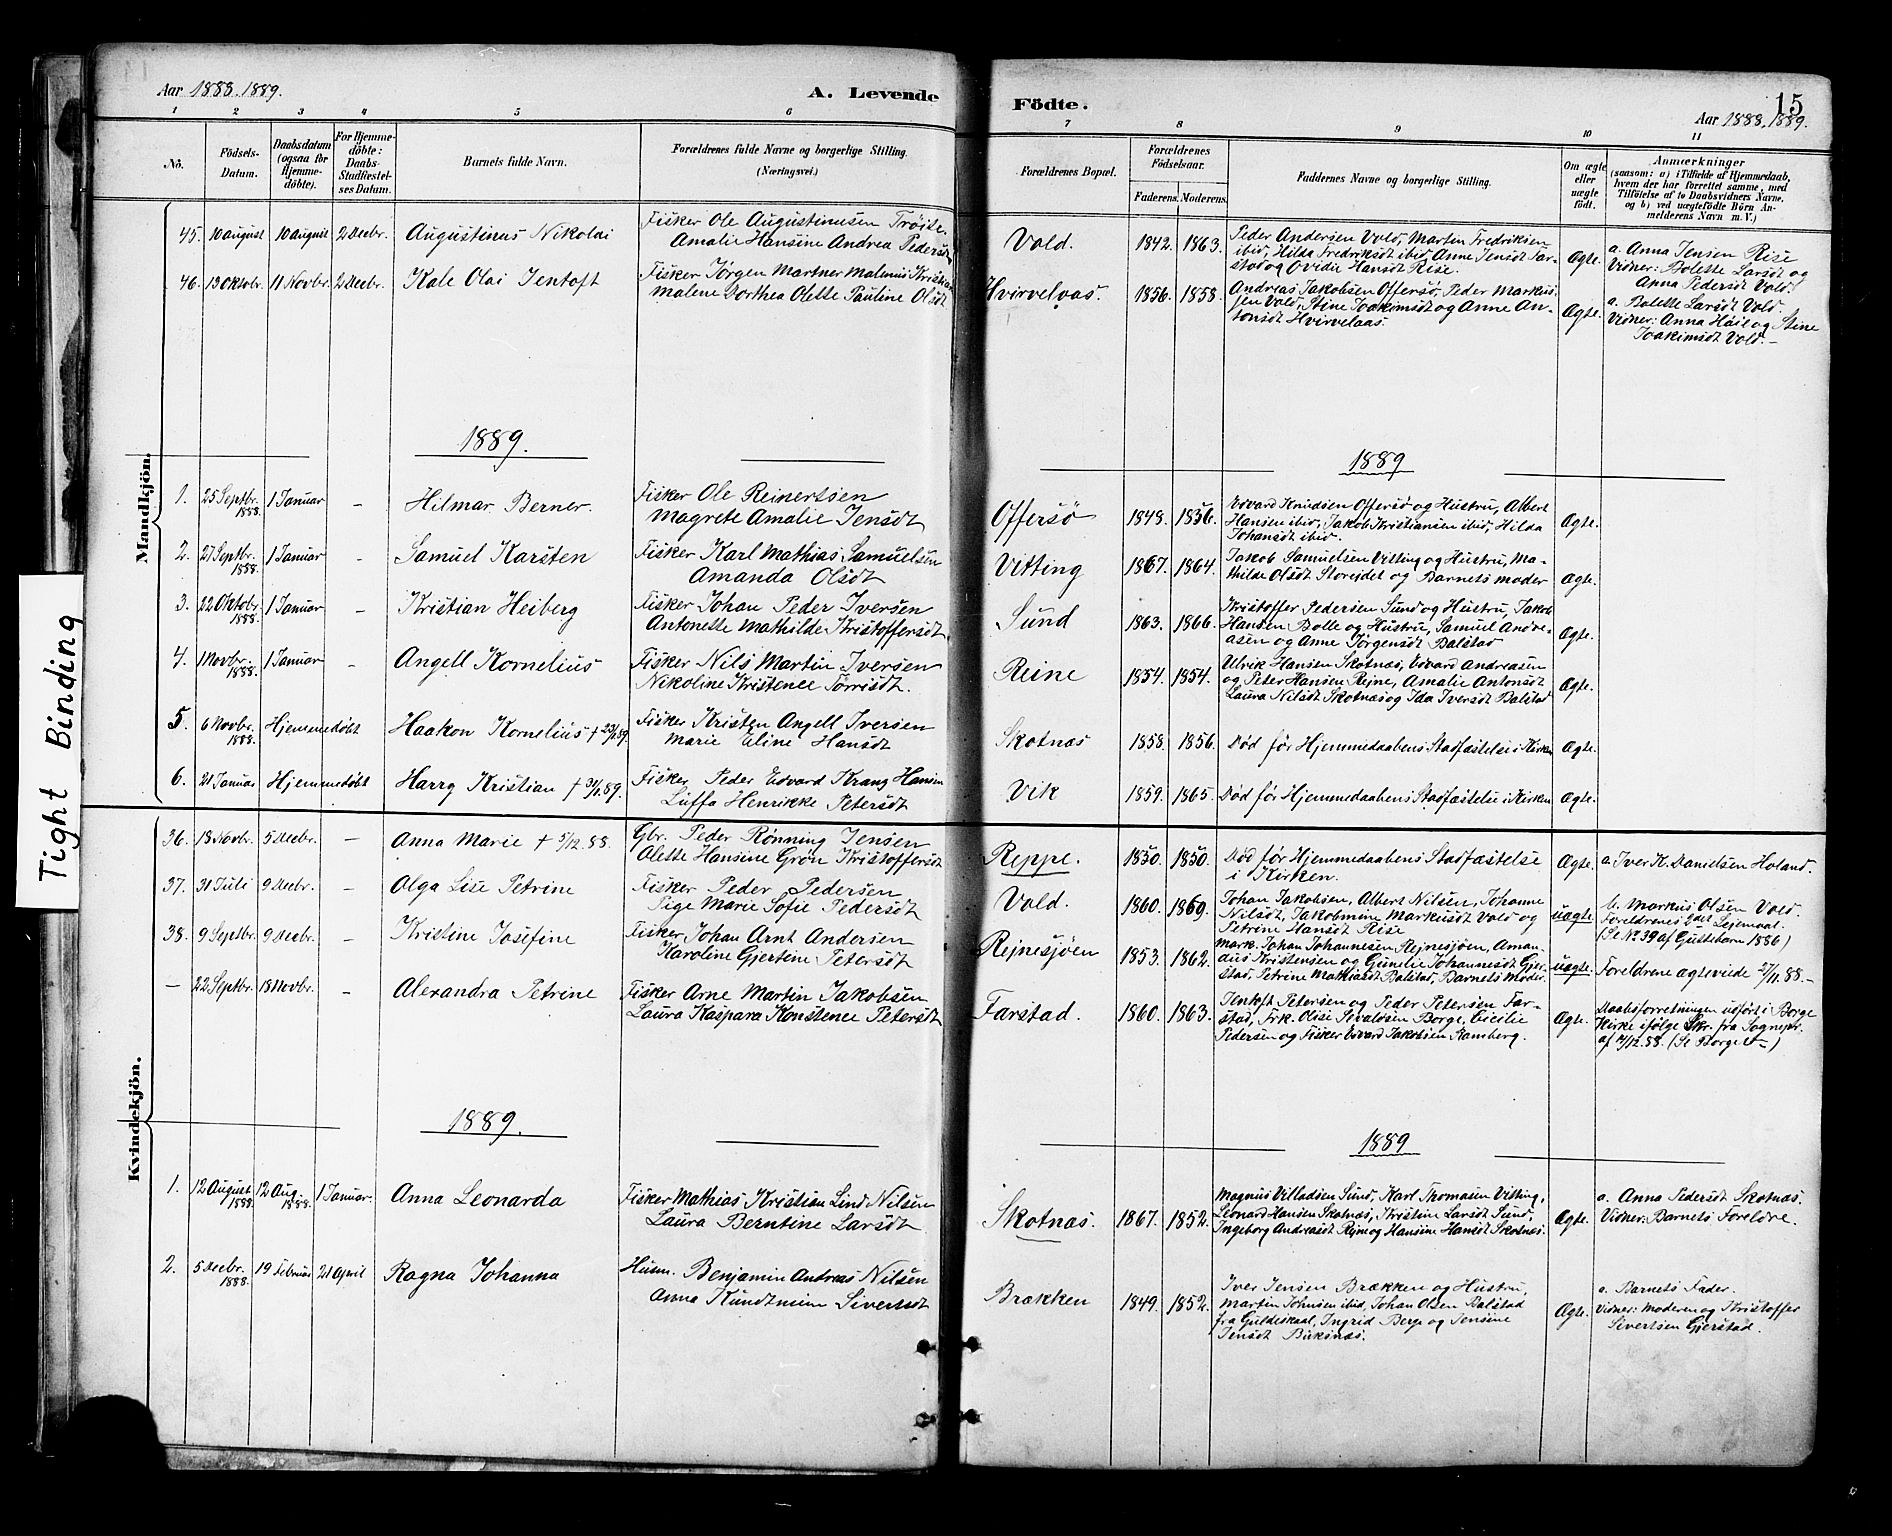 Aar 1888. 1889.
A. Levende
Födte.
15
Aar 1888, 1889.
1 2 3 4 5 6 7 8 9 10 11
No.
Födsels-Datum.
Daabsdatum (ogsaa for Hjemmedöbte).
For Hjemmedöbte: Daabs-Stadfæstelses Datum.
Barnets fulde Navn.
Forældrenes fulde Navne og borgerlige Stilling.
(Næringsvei.)
Forældrenes Bopæl.
Forældrenes Födselsaar.
Faderens. Moderens.
Faddernes Navne og borgerlige Stilling.
Om ægte eller uægte födt.
Anmærkninger
(saasom: a) i Tilfælde af Hjemmedaab, hvem der har forrettet samme, med Tilföielse af to Daabsvidners Navne, og b) ved uægtefödte Börn Anmelderens Navn m. V.)
Tight Binding
Mandkjön.
45. 10 August 10 August 2 Decbr. Augustinus Nikolai
Fisker Ole Augustinusen Trøite.
Amalie Hansine Andrea Pedersdt
Vold. 1842. 1863.
Peder Andersen Vold, Martin Fredriksen
ibid, Hilda Fredriksdt ibid, Anne Jensdt Far-
stad og Ovidie Hansdt Rise.
Ægte.
a. Anna Jensen Rise
Vidner: Bolette Larsdt og
Anna Pedersdt Vold.
46. 13 Oktobr. 11 Novbr. 2 Decbr. Kale Olai Jentoft
Fisker Jørgen Martner Malenius Kristian
Malene Dorthea Olette Pauline Olsdt
Hvirvelvas. 1856. 1858.
Andreas Jakobsen Offersø, Peder Markus-
sen Vold, Stine Joakimsdt og Anne An-
tonsdt Hvirvelaas.
Ægte.
a. Bolette Larsdt Vold.
Vidner: Anna Høil og Stine
Joakimsdt Vold.-
1889.
1889
1. 25 Septbr. 1888. 1 Januar - Hilmar Berner.
Fisker Ole Reinertsen
Magrete Amalie Jensdt
Offersø 1848. 1856.
Edvard Knudsen Offersø og Hustru, Albert
Hansen ibid, Jakob Kristiansen ibid, Hilda
Johansdt ibid.
Ægte.
2. 27 Septbr. 1888. 1 Januar - Samuel Karsten
Fisker Karl Mathias Samuelsen
Amanda Olsdt
Vitting 1867. 1864.
Jakob Samuelsen Vitting og Hustru, Ma-
thilde Olsdt Storeidet og Barnets Moder
Ægte.
3. 22 Oktobr. 1888. 1 Januar - Kristian Heiberg
Fisker Johan Peder Iversen
Antonette Mathilde Kristoffersdt
Sund 1863. 1866.
Kristoffer Pedersen Sund og Hustru, Jakob
Hansen Bolle og Hustru, Samuel Andre-
asen og Anne Jørgensdt Balstad
Ægte.
4. 1 Novbr. 1888. 1 Januar - Angell Kornelius
Fisker Nils Martin Iversen
Nikoline Kristence Torrisdt.
Reine 1854. 1854.
Ulrik Hansen Skotnæs, Edvard Andreasen
og Peter Hansen Rejne, Amalie Antonsdt
Laura Nilsdt Skotnæs og Ida Iversdt Balstad
Ægte.
5. 6 Novbr. 1888. Hjemmedøbt Haakon Kornelius + 23/1.89.
Fisker Kristen Angell Iversen
Marie Eline Hansdt
Skotnæs 1858. 1856. Død før Hjemmedaabens Stadfæstelse i Kirken Ægte.
6. 21 Januar Hjemmedøbt Harry Kristian + 31/1.89.
Fisker Peder Edvard Krang Hansen
Luffa Henrikke Petersdt
Vik 1859. 1865. Død før Hjemmedaabens Stadfæstelse i Kirken Ægte.
Kvindekjön.
36. 18 Novbr. 5 Decbr. - Anna Marie + 5/12.88.
Gbr. Peder Rønning Jensen
Olette Hansine Grøn Kristoffersdt
Reppe. 1850. 1850. Død før Hjemmedaabens Stadfæstelse
i Kirken.
Ægte. a. Iver H. Danielsen Holand.
37. 31 Juli 9 Decbr. - Olga Lise Petrine
Fisker Peder Pedersen
Pige Marie Sofie Pedersdt
Vold. 1860. 1869.
Johan Jakobsen, Albert Nilsen, Johanne
Nilsdt, Jakobmine Markusdt Vold og
Petrine Hansdt Rise
uægte
b. Markus Olsen Vold.
Foreldrenes 2det Lejemaal.
(Se No. 39 af Guttebørn 1886)
38. 9 Septbr. 9 Decbr. - Kristine Josefine
Fisker Johan Arnt Andersen
Karoline Gjertine Petersdt
Rejnesjøen 1853. 1862.
Mark. Johan Johannesen Rejnesjøen, Aman-
dus Kristensen og Gunelie Johannesdt Gjer-
stad, Petrine Mathiasdt Balstad, Barnets Moder.
uægte Foreldrene ægteviede 27/11.88.-
- 22 Septbr. 18 Novbr. - Alexandra Petrine
Fisker Arne Martin Jakobsen
Laura Kaspara Konstence Petersdt
Farstad. 1860. 1863.
Jentoft Petersen og Peder Petersen Far-
stad, Frk. Olise Sevaldsen Borge, Cicilie
Pedersen og Fisker Edvard Jakobsen Ramberg.
Ægte.
Daabsforretningen udført i Borge
Kirke ifølge Skr. fra Sognepr.
1889.
1889
1. 12 August 1888. 12 Aug. 1888. 1 Januar. Anna Leonarda
Fisker Mathias Kristian Lind Nilsen
Laura Berntine Larsdt
Skotnæs. 1867. 1852.
Magnus Villadsen Sund, Karl Thomasen Vitting,
Leonard Hansen Skotnæs, Kristine Larsdt Sund,
Ingeborg Andreasdt Rejne og Hansine Hansdt Skotnæs.
Ægte.
a. Anna Pedersdt Skotnæs.
Vidner: Barnets Foreldre.
2. 5 Decbr. 1888. 19 Februar 21 April Ragna Johanna
Husm. Benjamin Andreas Nilsen
Anna Kundtmine Sivertsdt
Brækken 1849. 1852.
Iver Jensen Brækken og Hustru,
Martin Johnsen ibid, Johan Olsen Balstad
fra Guldeskaal, Ingrid Berge og Jensine
Jensdt
Ægte.
a. Barnets Fader.
Vidner: Moderen og Kristoffer
Sivertsen Gjerstad.